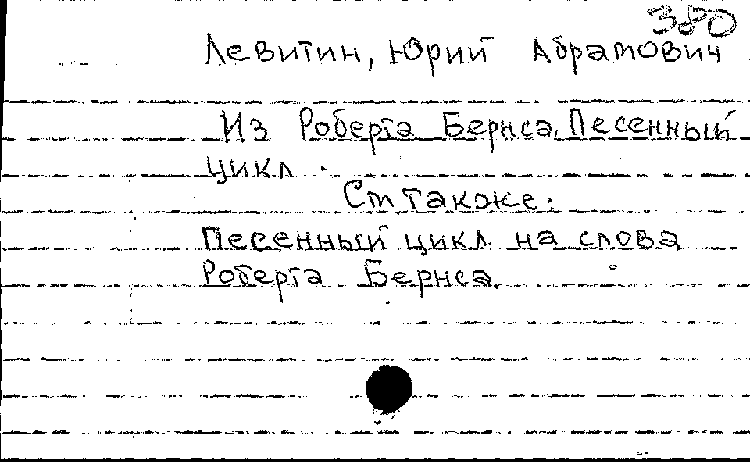 380
Левитин, Юрий Абрамович
Из Роберта Бернса. Песенный
цикл.
См также:
Песенный цикл на слова
Роберта Бернса.